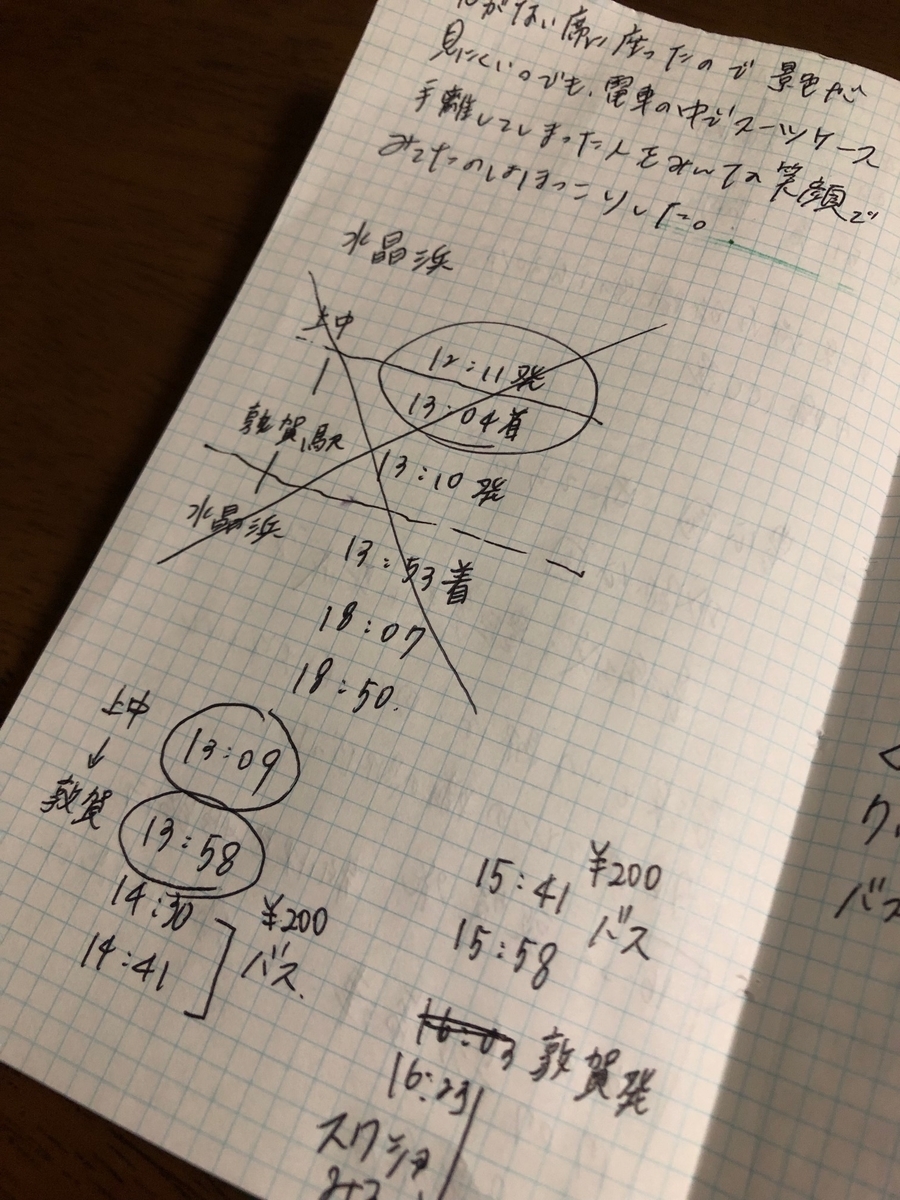 がない席に座ったので景色が
見にくいのでも、電車の中でスーツケース
手離してしまった人をみんなの笑顔で
みてたのしほっこりした。
水晶浜
上中
12:11発
13:04着
敦賀駅
13:10発
水晶浜
13:53着
18:07
18:50.
上中
↓
敦賀
13:09
13:58
14:30
14:41
¥200
バス.
15:41
15:58
¥200
バス
16:03
敦賀発
16:23
バス